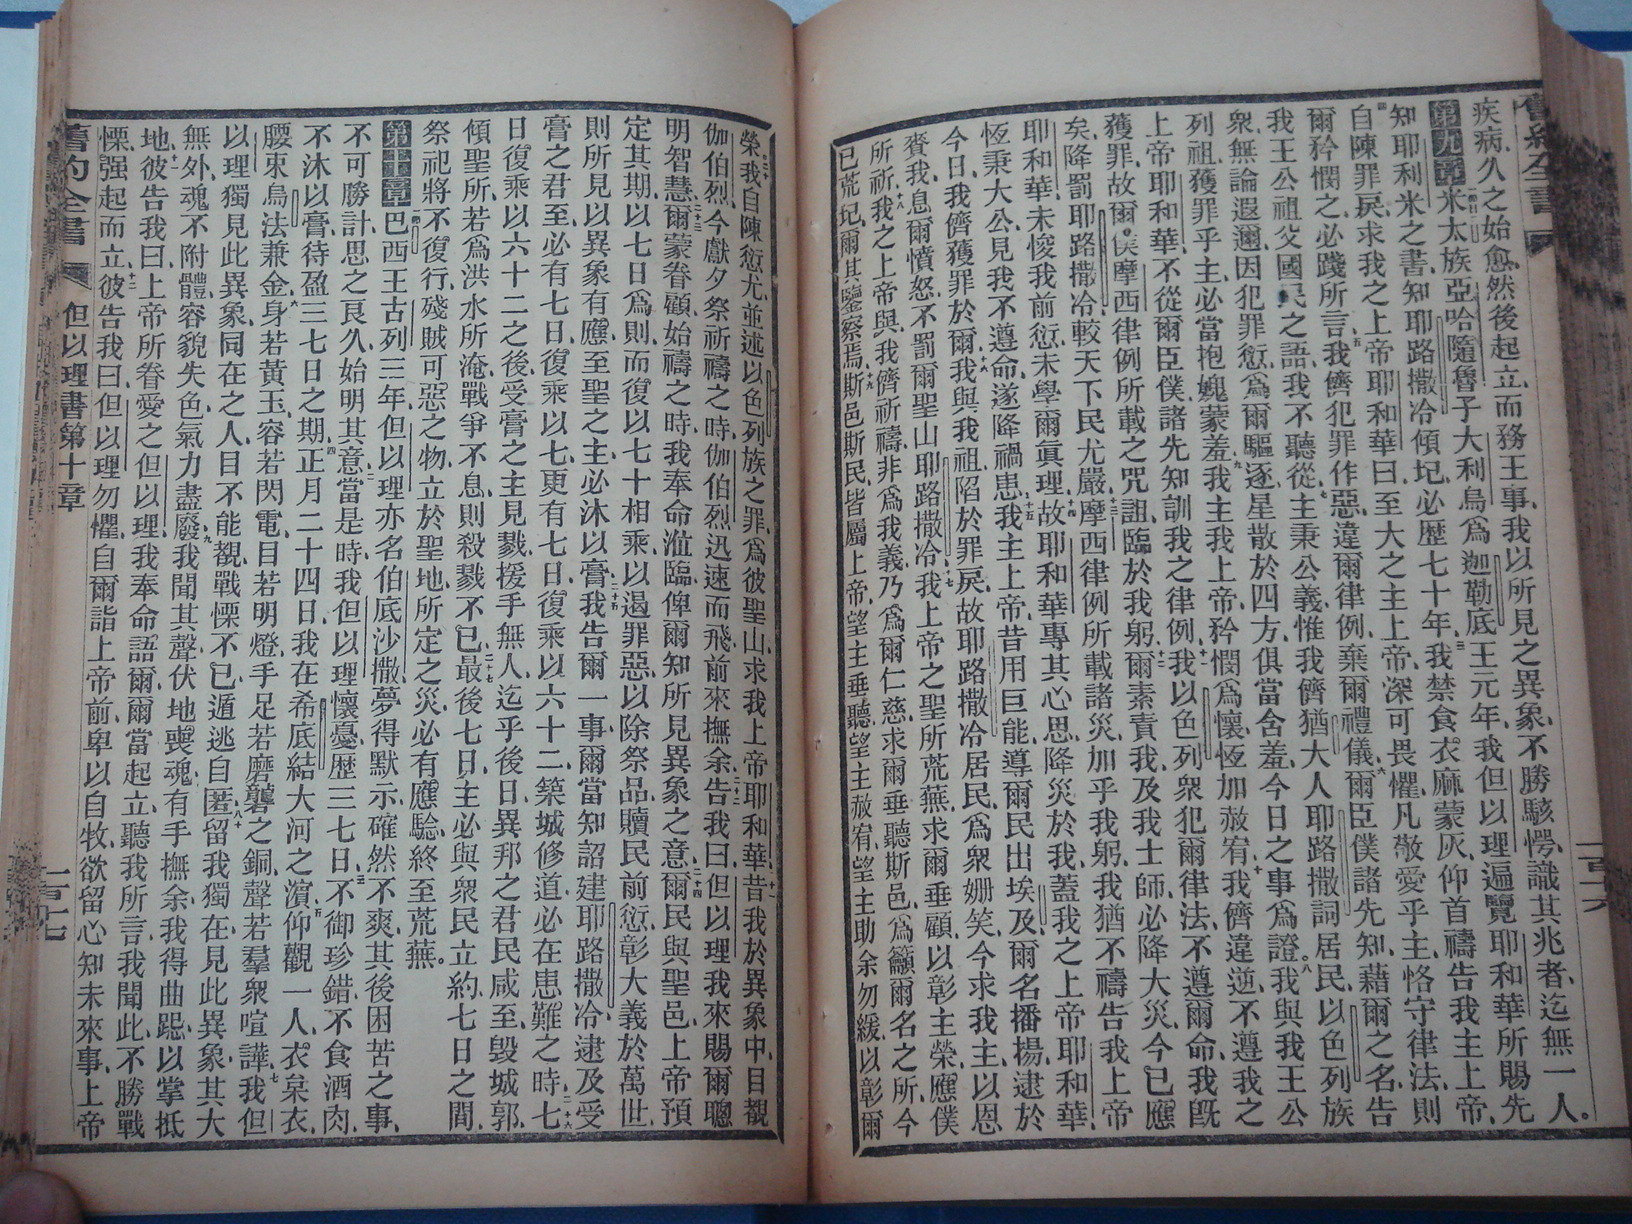 舊約全書
疾病久之始愈然後起立而務王事我以所見之異象不勝駭愕識其兆者迄無一人。
第九章 米太族亞哈隨魯子大利烏爲迦勒底王元年我但以理遍覽耶和華所賜先
知耶利米之書知耶路撒冷傾圮必歷七十年我禁食衣麻蒙灰仰首禱告我主上帝
自陳罪戾求我之上帝耶和華曰至大之主上帝深可畏懼凡敬愛乎主恪守律法則
爾矜憫之必踐所言我儕犯罪作惡違爾律例棄爾禮儀爾臣僕諸先知藉爾之名告
我王公祖父國民之語我不聽從主秉公義惟我儕猶大人耶路撒詞居民以色列族
衆無論遐邇因犯罪愆爲爾驅逐星散於四方俱當含羞今日之事爲證我與我王公
列祖獲罪乎主必當抱媿蒙羞我主我上帝矜憫爲懷恆加赦宥我儕違逆不遵我之
上帝耶和華不從爾臣僕諸先知訓我之律例我以色列衆犯爾律法不遵爾命我旣
獲罪故爾僕摩西律例所載之咒詛臨於我躬爾素責我及我士師必降大災今已應
矣降罰耶路撒冷較天下民尤嚴摩西律例所載諸災加乎我躬我猶不禱告我上帝
耶和華未悛我前愆未學爾眞理故耶和華專其心思降災於我蓋我之上帝耶和華
恆秉大公見我不遵命遂降禍患我主上帝昔用巨能導爾民出埃及爾名播揚逮於
今日我儕獲罪於爾我與我祖陷於罪戾故耶路撒冷居民爲衆姍笑今求我主以恩
賚我息爾憤怒不罰爾聖山耶路撒冷我上帝之聖所荒蕪求爾垂顧以彰主榮應僕
所祈我之上帝與我儕祈禱非爲我義乃爲爾仁慈求爾垂聽斯邑爲籲爾名之所今
已荒圮爾其鑒察焉斯邑斯民皆屬上帝望主垂聽望主赦宥望主助余勿緩以彰爾
榮我自陳愆尤並述以色列族之罪爲彼聖山求我上帝耶和華昔我於異象中目觀
伽伯烈今獻夕祭祈禱之時伽伯烈迅速而飛前來撫余告我曰但以理我來賜爾聰
明智慧爾蒙眷顧始禱之時我奉命涖臨俾爾知所見異象之意爾民與聖邑上帝預
定其期以七日爲則而復以七十相乘以遏罪惡以除祭品贖民前愆彰大義於萬世
則所見以異象有應至聖之主必沐以膏我告爾一事爾當知詔建耶路撒冷逮及受
膏之君至必有七日復乘以七更有七日復乘以六十二築城修道必在患難之時七
日復乘以六十二之後受膏之主見戮援手無人迄乎後日異邦之君民咸至毀城郭
傾聖所若爲洪水所淹戰爭不息則殺戮不已最後七日主必與衆民立約七日之間
祭祀將不復行殘賊可惡之物立於聖地所定之災必有應驗終至荒蕪。
第十章 巴西王古列三年但以理亦名伯底沙撒夢得默示確然不爽其後困苦之事
不可勝計思之良久始明其意當是時我但以理懷憂歷三七日不御珍錯不食酒肉
不沐以膏待盈三七日之期正月二十四日我在希底結大河之濱仰觀一人衣枲衣
腰束烏法兼金身若黃玉容若閃電目若明燈手足若磨礱之銅聲若羣衆喧譁我但
以理獨見此異象同在之人目不能觀戰慄不已遁逃自匿留我獨在見此異象其大
無外魂不附體容貌失色氣力盡廢我聞其聲伏地喪魂有手撫余我得曲跽以掌抵
地彼告我曰上帝所眷愛之但以理我奉命語爾爾當起立聽我所言我聞此不勝戰
慄强起而立彼告我曰但以理勿懼自爾詣上帝前卑以自牧欲留心知未來事上帝
舊約全書 但以理書第十章